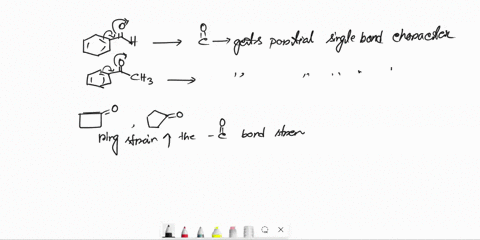 O H → O C → gets partial single bond character
O CH3 → " " " " "
O , O
Ring strain ↑ the -C O bond stren